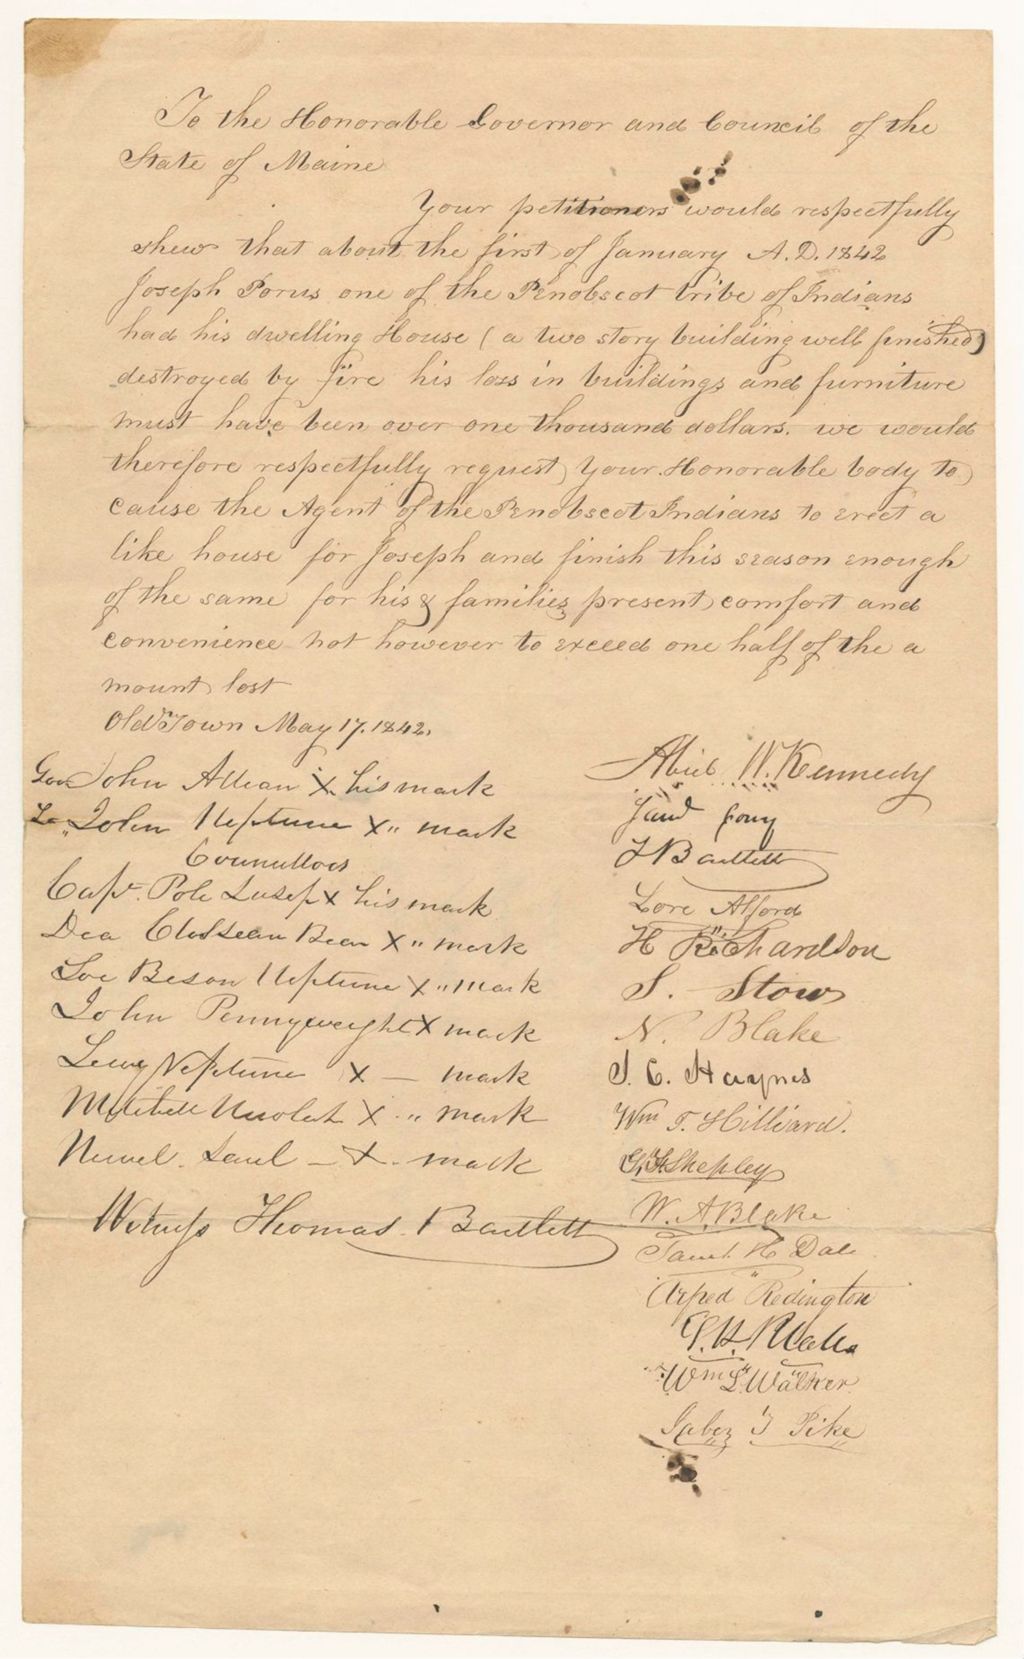 To the Honorable Governor and Council of the
State of Maine
Your petitioners would respectfully
shew that about the first of January A.D. 1842
Joseph Porus one of the Penobscot tribe of Indians
had his dwelling House (a two story building well finished)
destroyed by fire his loss in buildings and furniture
must have been over one thousand dollars. we would
therefore respectfully request your Honorable body to
cause the Agent of the Penobscot Indians to erect a
like house for Joseph and finish this season enough
of the same for his & families present comfort and
convenience not however to exceed one half of the a
mount lost
Old Town May 17. 1842.
Gov John Attean X his mark
John Neptune X " mark
Councillors
Capt. Pole Susep X his mark
Dea Bean X " mark
Neptune X " mark
John Pennyweight X mark
Neptune X — mark
Mitchell X " mark
Newel Saul — X. mark
Witness Thomas Bartlett
Abiel W. Kennedy
T Bartlett
Lore Alford
H Richardson
S. Stow
N. Blake
J. C. Haynes
Wm T. Hilliard.
G. F. Shepley
W. A. Blake
Saml. H Dale
Alfred Redington
Wm L. Walker
Jabez T Pike